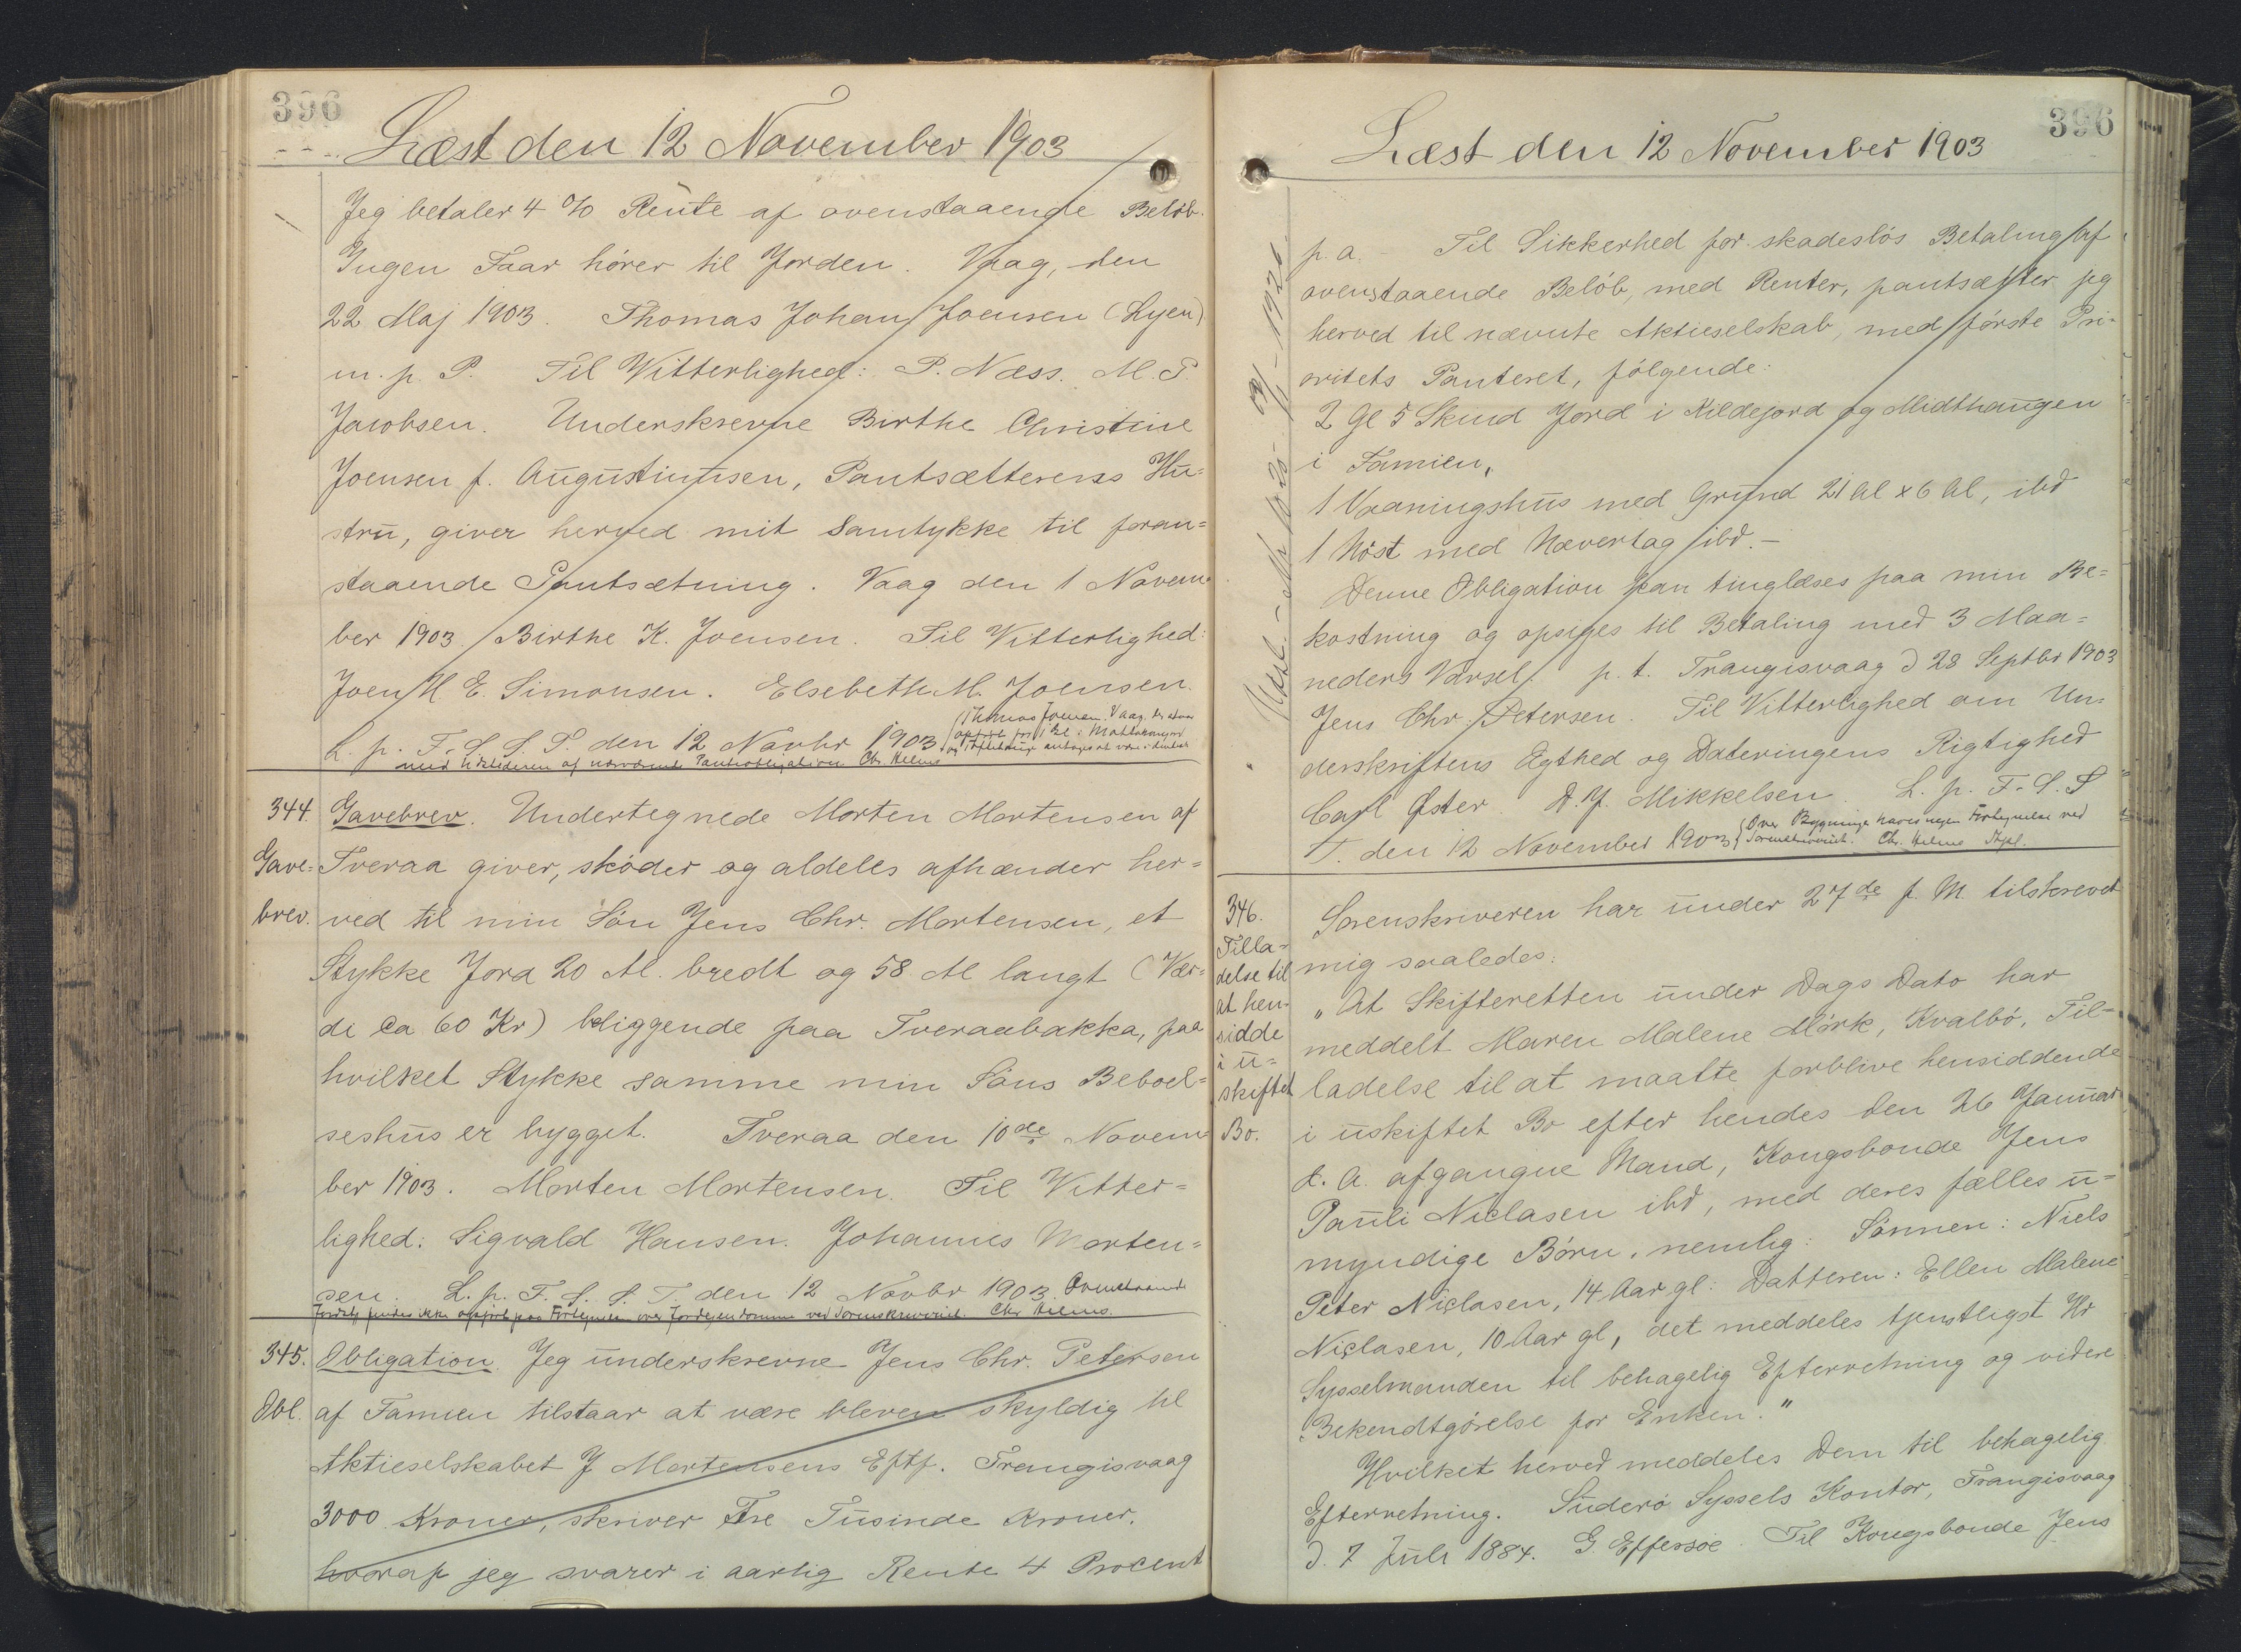 396
Læst den 12 November 1903
Jeg betaler 4 % Rente af ovenstaaende Beløb.
Ingen Faar hører til Jorden. Vaag, den
22 Maj 1903. Thomas Johan Joensen (Lyen)
m. p. P. Til Vitterlighed: P. Næss. M. P.
Jacobsen. Underskrevne Birthe Christine
Joensen f. Augustinusen, Pantsætterens Hu=
stru, giver herved mit Samtykke til foran=
staaende Pantsætning. Vaag den 1 Novem=
ber 1903. Birthe K. Joensen. Til Vitterlighed:
Joen H E. Simonsen. Elsebeth M. Joensen.
L. p. F. S. S. T. den 12 Novbr 1903. {Thomas Joensen. Vaag
med Udstederen af nærværende Pantobligation Chr. Helms
344. Gavebrev. Undertegnede Morten Mortensen af
Gave= Tveraa giver, skøder og aldeles afhænder her=
brev. ved til min Søn Jens Chr. Mortensen, et
Stykke Jord 20 Al. bredt og 58 Al langt (Vær=
di Ca 60 Kr) beliggende paa Tveraabakka, paa
hvilket Stykke samme min Søns Beboel=
seshus er bygget. Tveraa den 10de Novem=
ber 1903. Morten Mortensen. Til Vitter=
lighed: Sigvald Hansen. Johannes Morten=
sen. L. p. F. S. S. T. den 12 Novbr 1903. Ovennævnte
Jordstk findes ikke opført paa Fortegnelsen over Jordejendomme ved Sorenskriveriet. Chr Helms.
345. Obligation. Jeg underskrevne Jens Chr. Petersen
Obl. af Famien tilstaar at være bleven skyldig til
Aktieselskabet J Mortensens Eftf. Trangisvaag
3000 Kroner, skriver Tre Tusinde Kroner.
hvoraf jeg svarer i aarlig Rente 4 Procent
396
Læst den 12 November 1903
p. a. - Til Sikkerhed for skadesløs Betaling af
ovenstaaende Beløb, med Renter, pantsætter jeg
herved til nævnte Aktieselskab, med første Pri=
oritets Panteret, følgende:
2 Gl 5 Skind Jord i Kildejord og Midthaugen
i Famien,
1 Vaaningshus med Grund 21 Al x 6 Al, ibd
1 Nøst med Nævertag ibd. -
Denne Obligation kan tinglæses paa min Be=
kostning og opsiges til Betaling med 3 Maa=
neders Varsel. p. t. Trangisvaag d 28 Septbr 1903
Jens Chr. Petersen. Til Vitterlighed om Un=
derskriftens Ægthed og Dateringens Rigtighed
Carl Øster. D. J. Mikkelsen. L. p. F. S. S
T. den 12 November 1903 {Over Bygninger haves ingen Fortegnelse ved
Sorenskriveriet. Chr. Helms
346. Sorenskriveren har under 27de f. M. tilskrevet
Tilla= mig saaledes:
delse til
at hen= "At Skifteretten under Dags Dato har
sidde meddelt Maren Malene Mörk, Kvalbø, Til=
i u= ladelse til at maatte forblive hensiddende
skiftet
Bo. i uskiftet Bo efter hendes den 26 Januar
d. A. afgangne Mand, Kongsbonde Jens
Pauli Niclasen ibd, med deres fælles u=
myndige Børn, nemlig: Sønnen: Niels
Peter Niclasen, 14 Aar gl: Datteren: Ellen Malene
Niclasen, 10 Aar gl, det meddeles tjenstligst Hr
Sysselmanden til behagelig Efterretning og videre
Bekendtgørelse for Enken."
Hvilket herved meddeles Dem til behagelig
Efterretning. Suderø Syssels Kontor, Trangisvaag
d. 7 Juli 1884. G. Effersøe. Til Kongsbonde Jens